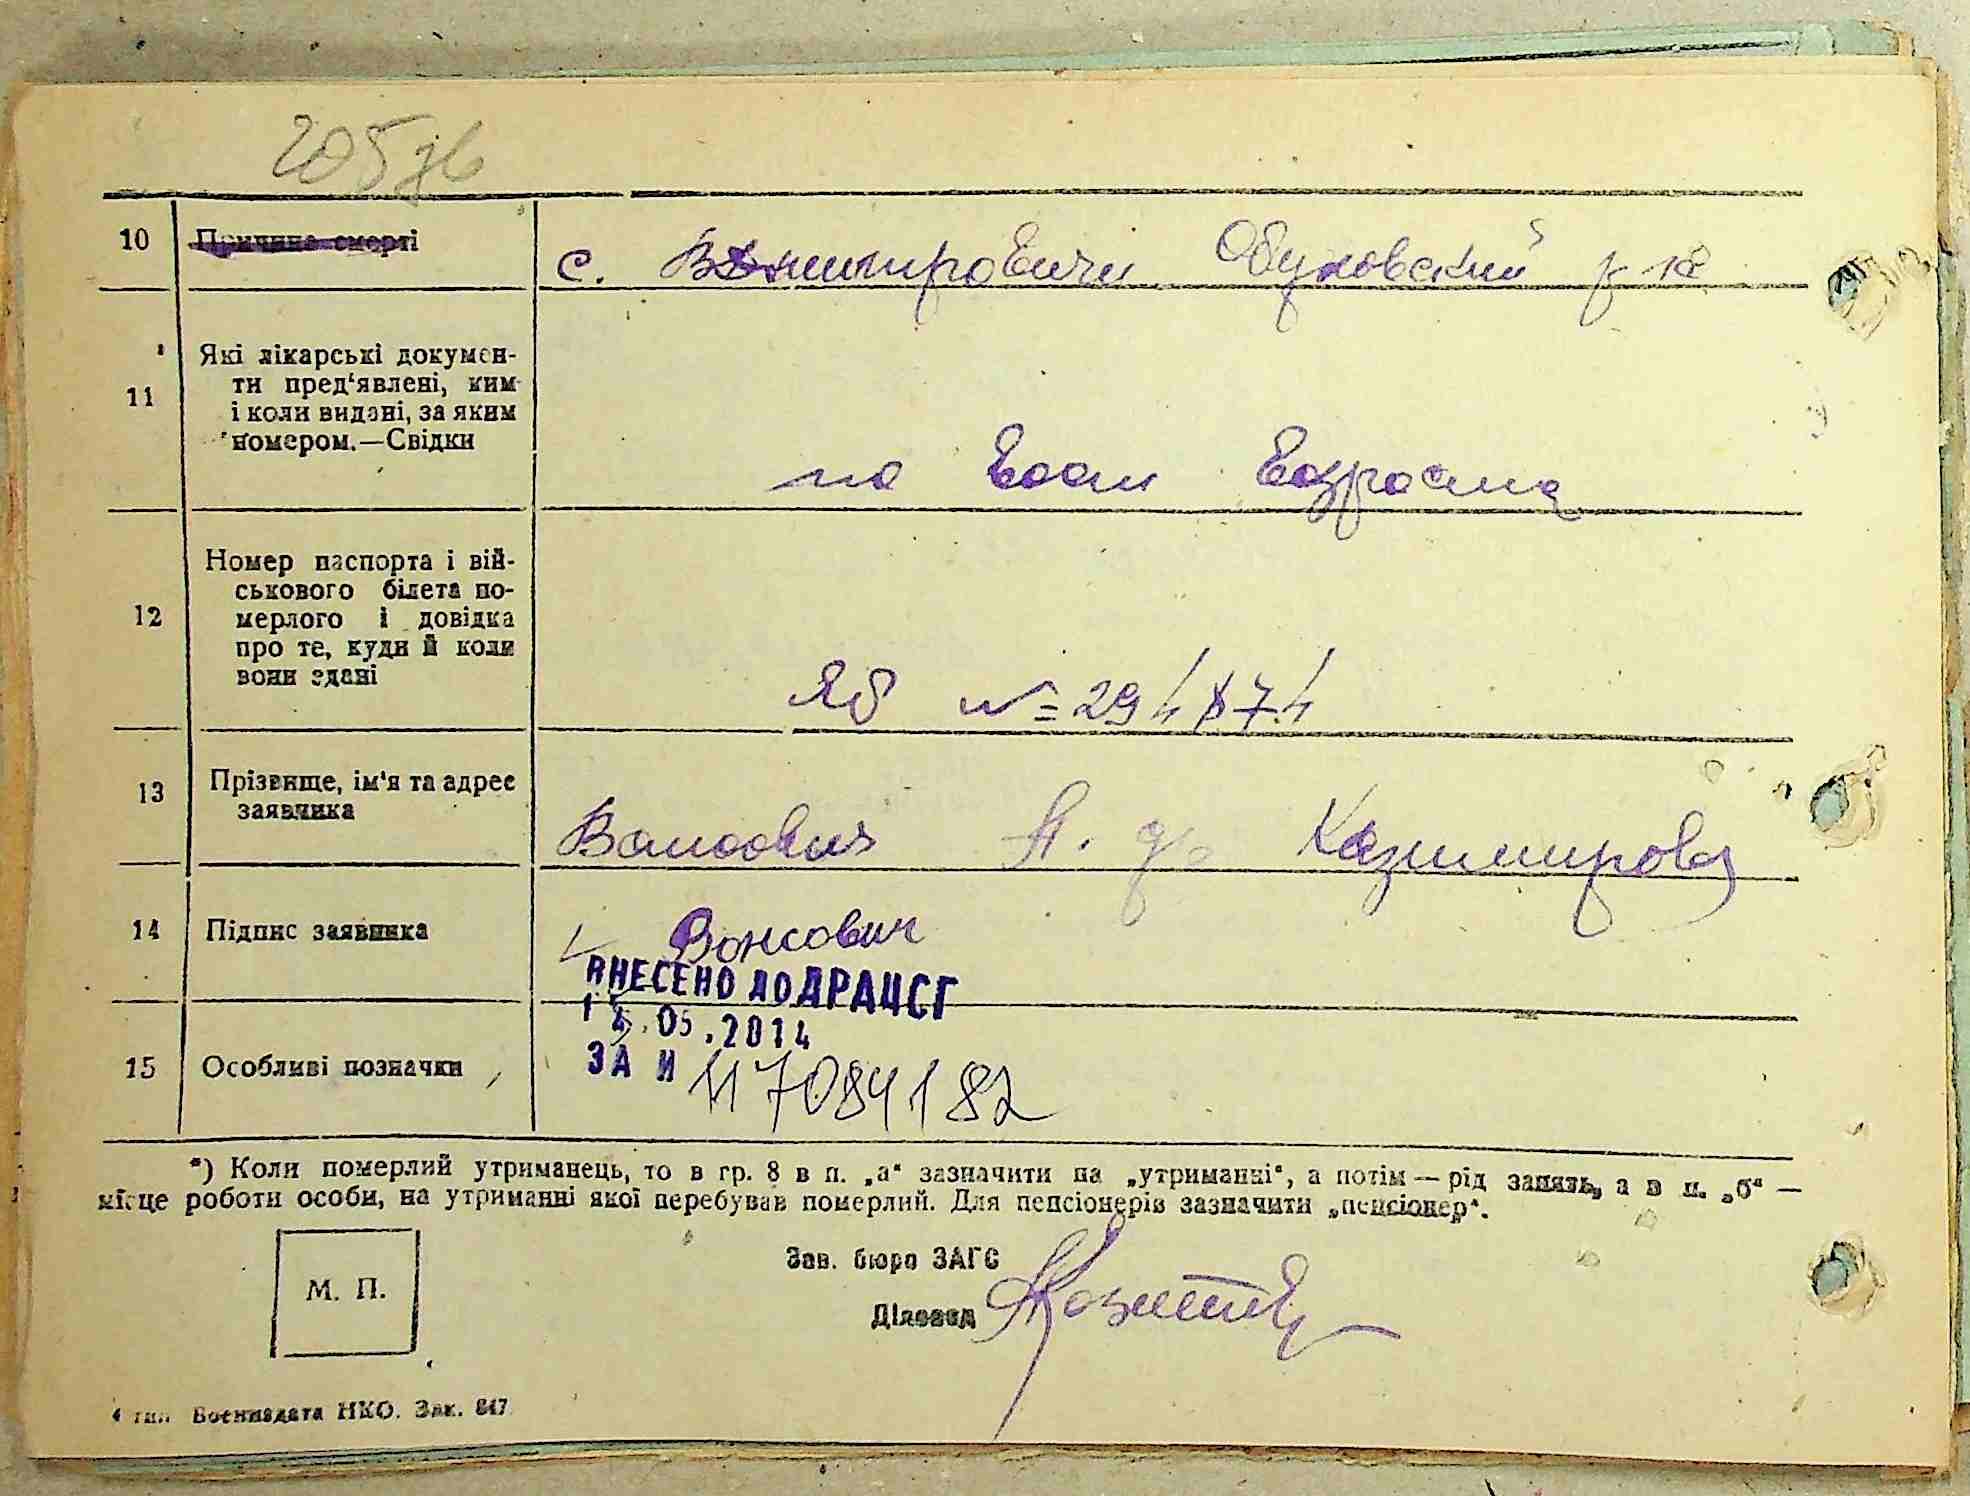 205зв
10 Причина смерті
с. Винтировичи Обуховский р-на
11 Які лікарські докумен-
ти пред'явлені, ким
і коли видані, за яким
номером.—Свідки
по возраста
12 Номер паспорта і вій-
ськового білета по-
мерлого і довідка
про те, куди й коли
вони здані
ЯБ №
13 Прізвище, ім'я та адрес
заявника
Вонсович А. Казимировна
14 Підпис заявника
Вонсович
ВНЕСЕНО ДО ДРАЦСГ
05.2014
15 Особливі позначки
ЗА № 117084182
*) Коли померлий утриманець, то в гр. 8 в п. „а“ зазначити на „утриманні“, а потім — рід занять, а в п. „б“ —
місце роботи особи, на утриманні якої перебував померлий. Для пенсіонерів зазначити „пенсіонер“.
М. П.
Зав. бюро ЗАГС
Діловод
4 тип Воениздата НКО. Зак. 847